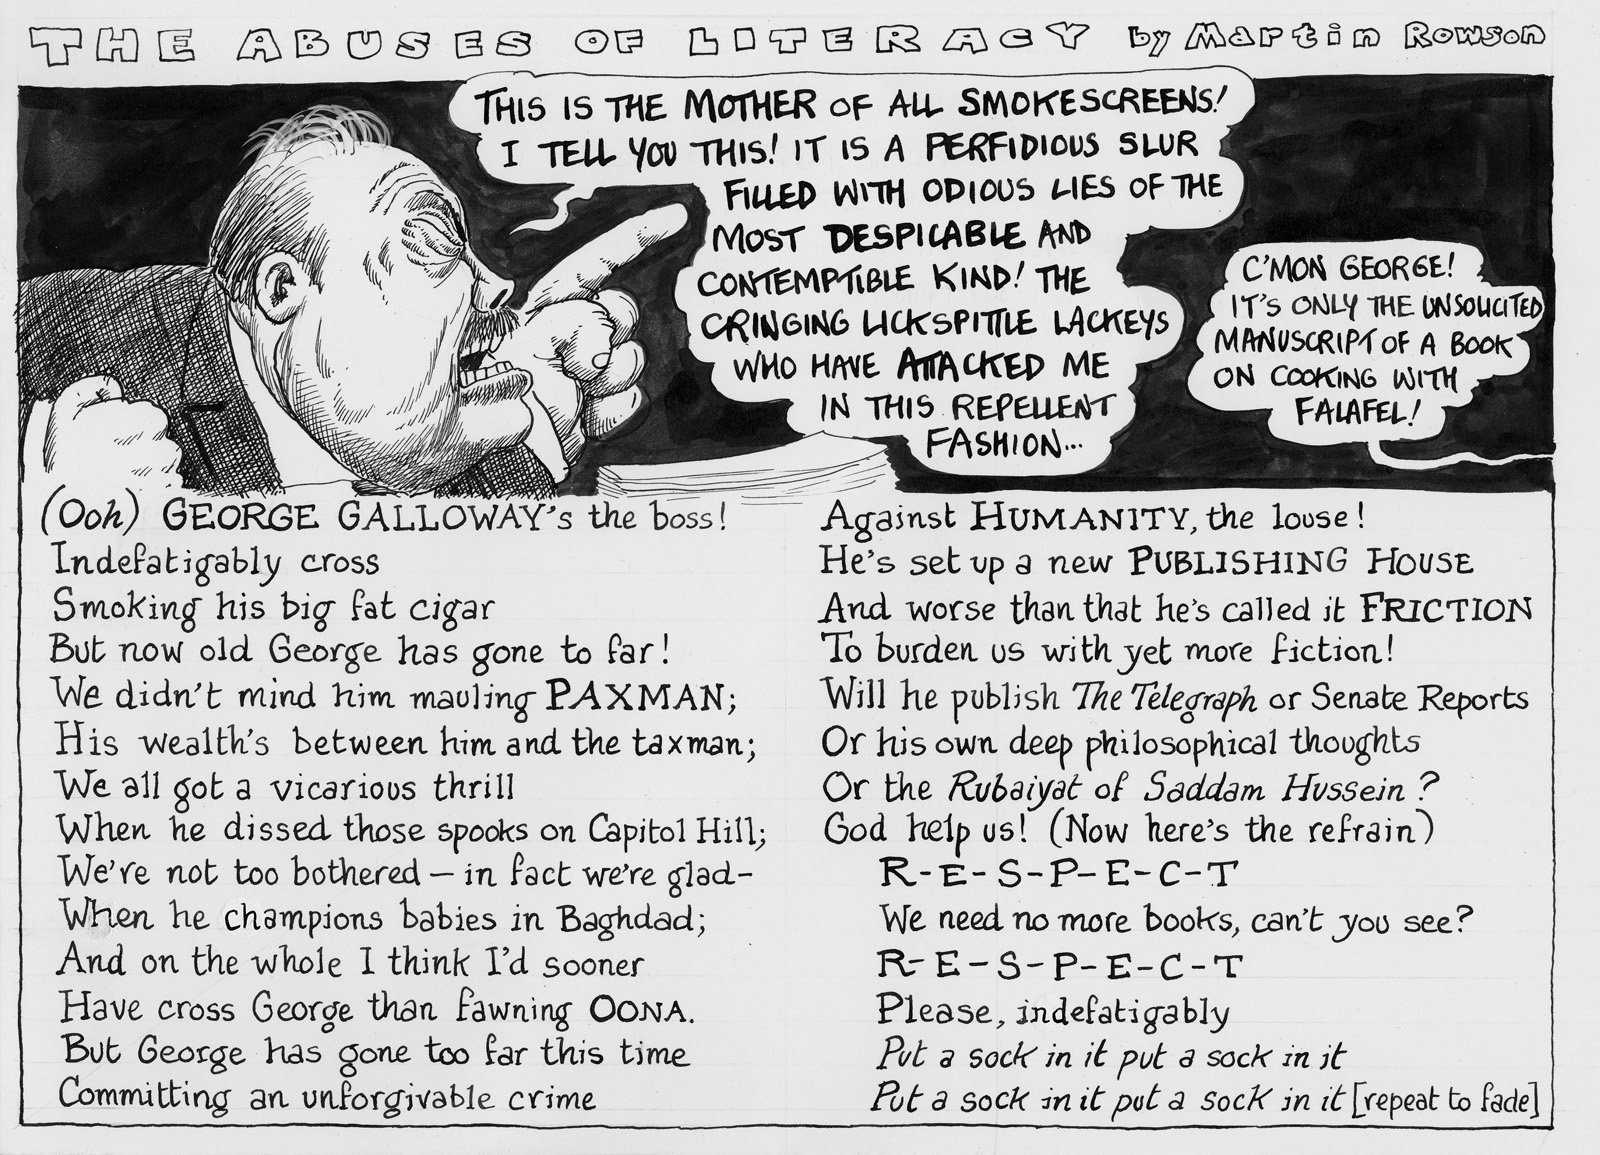 THE ABUSES OF LITERACY by Martin Rowson
THIS IS THE MOTHER OF ALL SMOKESCREENS!
I TELL YOU THIS! IT IS A PERFIDIOUS SLUR
FILLED WITH ODIOUS LIES OF THE
MOST DESPICABLE AND
CONTEMPTIBLE KIND! THE
CRINGING LICKSPITTLE LACKEYS
WHO HAVE ATTACKED ME
IN THIS REPELLENT
FASHION...
C'MON GEORGE!
IT'S ONLY THE UNSOLICITED
MANUSCRIPT OF A BOOK
ON COOKING WITH
FALAFEL!
(Ooh) GEORGE GALLOWAY's the boss!
Indefatigably cross
Smoking his big fat cigar
But now old George has gone to far!
We didn't mind him mauling PAXMAN;
His wealth's between him and the taxman;
We all got a vicarious thrill
When he dissed those spooks on Capitol Hill;
We're not too bothered – in fact we're glad-
When he champions babies in Baghdad;
And on the whole I think I'd sooner
Have cross George than fawning OONA.
But George has gone too far this time
Committing an unforgivable crime
Against HUMANITY, the louse!
He's set up a new PUBLISHING HOUSE
And worse than that he's called it FRICTION
To burden us with yet more fiction!
Will he publish The Telegraph or Senate Reports
Or his own deep philosophical thoughts
Or the Rubaiyat of Saddam Hussein?
God help us! (Now here's the refrain)
R-E-S-P-E-C-T
We need no more books, can't you see?
R-E-S-P-E-C-T
Please, indefatigably
Put a sock in it put a sock in it
Put a sock in it put a sock in it [repeat to fade]